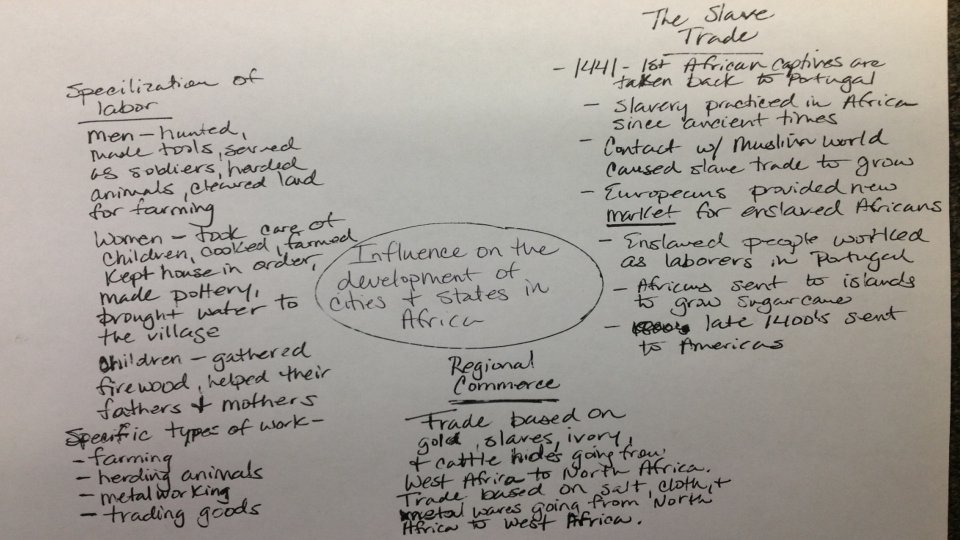 Specilization of
labor
Men - hunted,
made tools, served
as soldiers, herded
animals, cleared land
for farming
Women - took care of
children, cooked, farmed
kept house in order,
made pottery,
brought water to
the village
children - gathered
firewood, helped their
fathers + mothers
Specific types of work -
- farming
- herding animals
- metalworking
- trading goods
Influence on the
development of
cities + states in
Africa
Regional
Commerce
Trade based on
gold, slaves, ivory,
+ cattle hides going from
West Africa to North Africa.
Trade based on salt, cloth, +
metal wares going from North
Africa to West Africa.
The Slave
Trade
- 1441 - 1st African captives are
taken back to Portugal
- Slavery practiced in Africa
since ancient times
- Contact w/ Muslim world
caused slave trade to grow
- Europeans provided new
market for enslaved Africans
- Enslaved people worked
as laborers in Portugal
- Africans sent to islands
to grow sugarcane
- late 1400's sent
to Americas